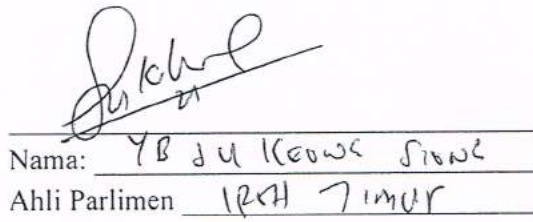 Nama: YB SU KEONG SIONG
Ahli Parlimen IPOH TIMUR